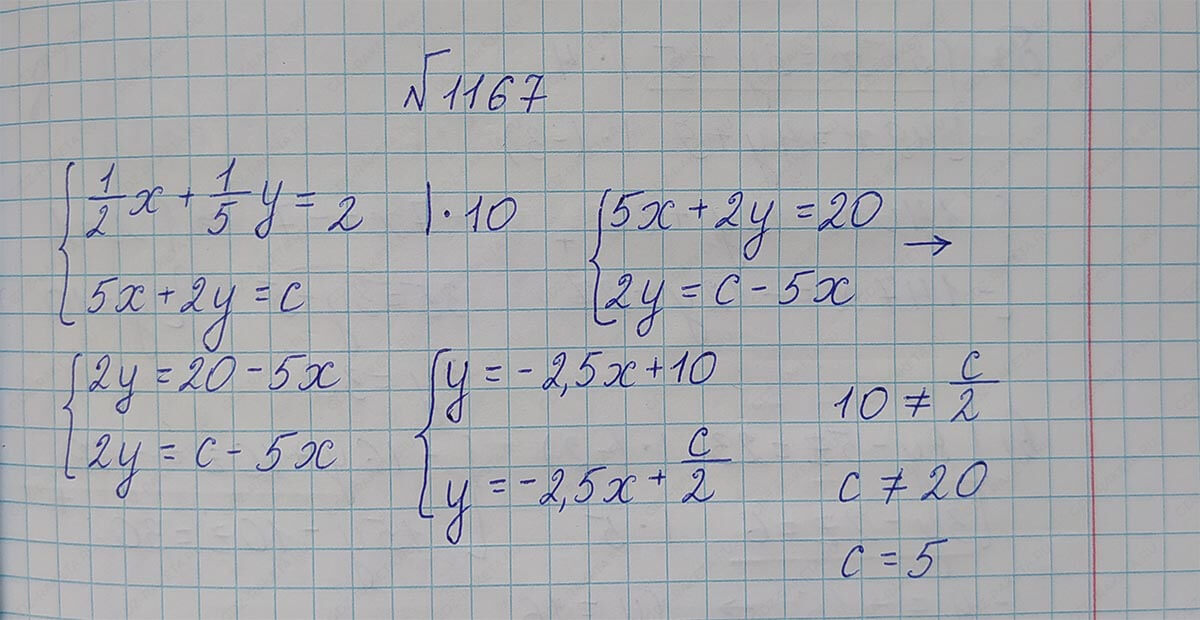 №1167
{ 1/2 x + 1/5 y = 2 | · 10
5x + 2y = c
{ 5x + 2y = 20 →
2y = c - 5x
{ 2y = 20 - 5x
2y = c - 5x
{ y = -2,5x + 10
y = -2,5x + c/2
10 ≠ c/2
c ≠ 20
c = 5